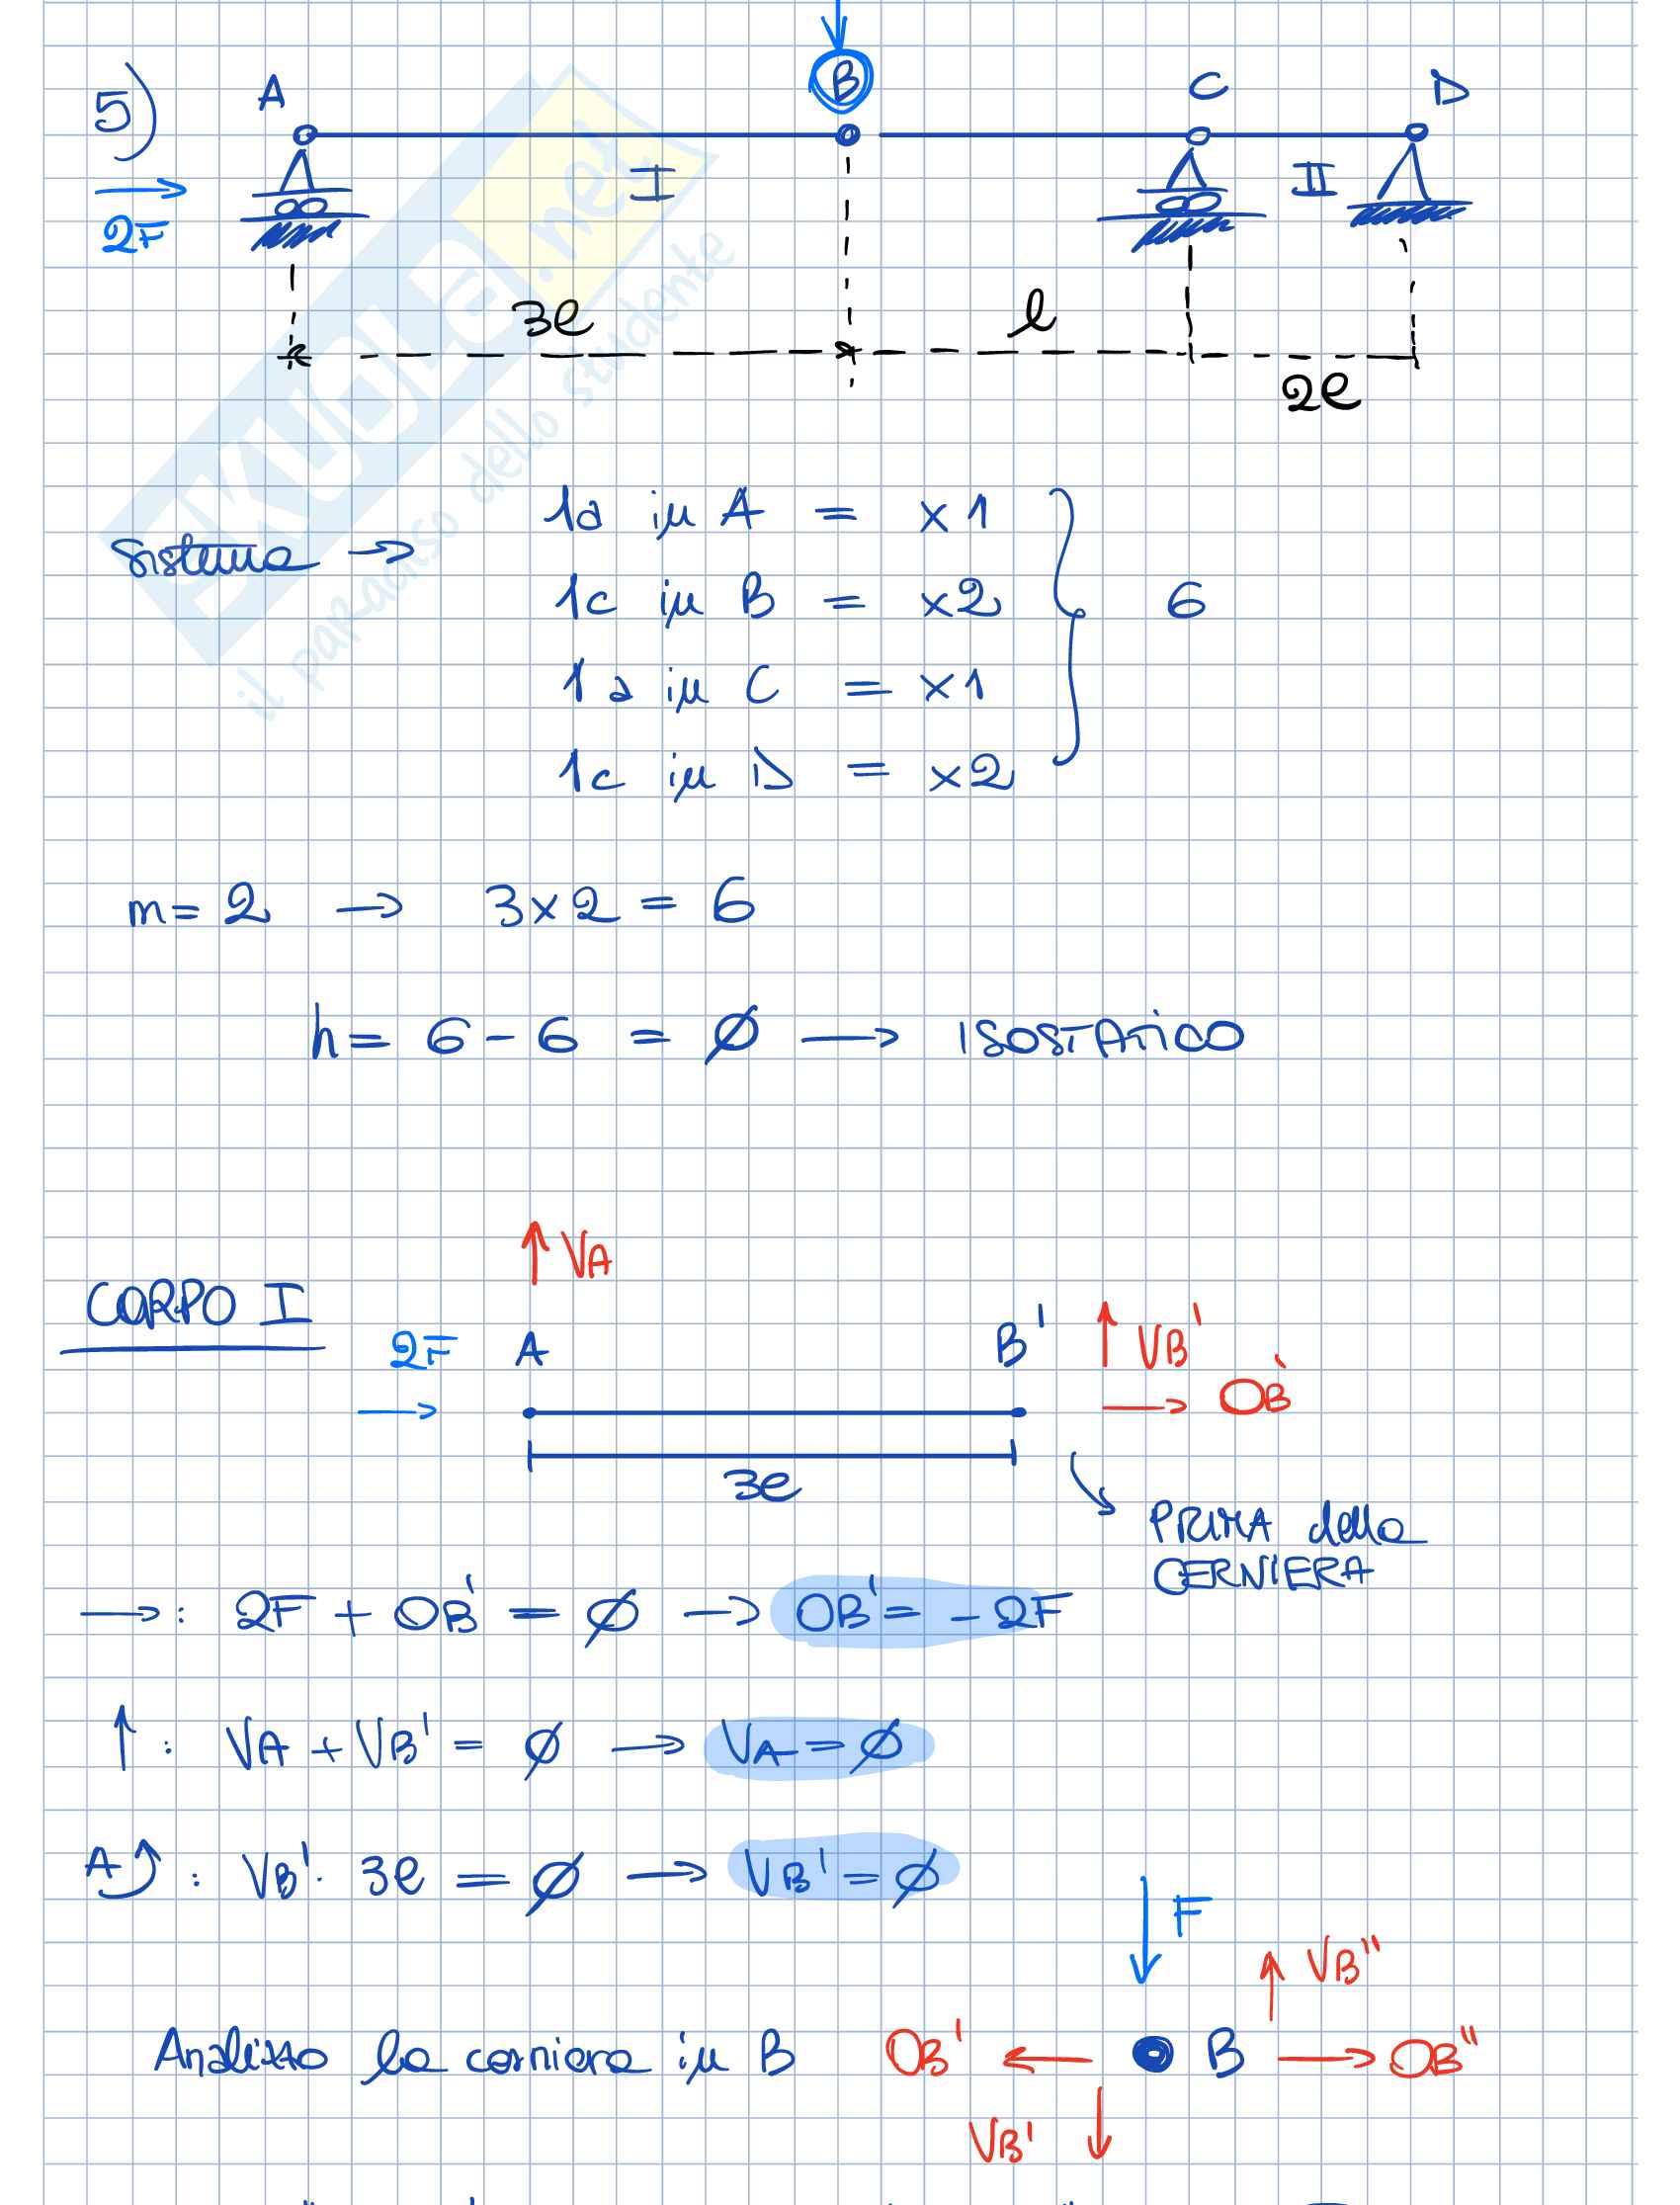 5) A B C D
2F I II
3l l 2l
SKUOLA.net
il paradiso dello studente
Sistema → 1a in A = x1
1c in B = x2 } 6
1a in C = x1
1c in D = x2
m = 2 → 3x2 = 6
h = 6 - 6 = ∅ → ISOSTATICO
↑ VA
CORPO I
2F → A B' ↑ VB'
→ OB'
3l
PRIMA della
CERNIERA
→: 2F + OB' = ∅ → OB' = - 2F
↑: VA + VB' = ∅ → VA = ∅
A: VB' · 3l = ∅ → VB' = ∅
↓ F
↑ VB"
Analizzo la cerniera in B OB' ← B → OB"
VB' ↓